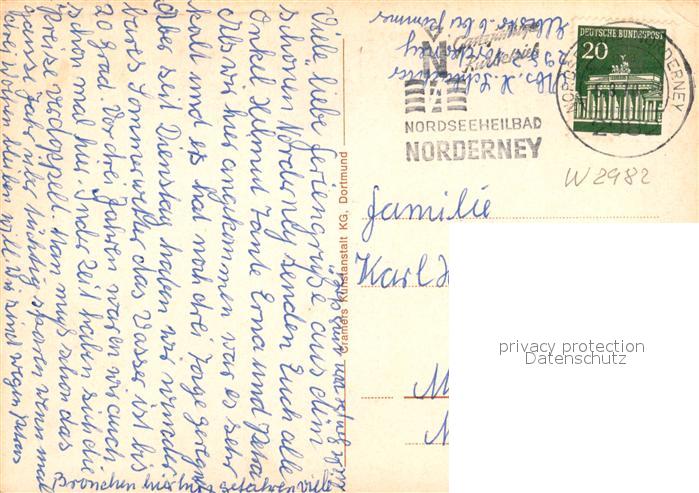 Viele liebe Feriengrüße aus dem
schönen Norderney senden Euch alle
Onkel Helmut Tante Erna und Petra
Als wir hier angekommen war es sehr
kalt und es hat noch drei Tage geregnet
Aber seit Dienstag haben wir wunder
bares Sommerwetter das Wasser ist bis
20 grad. Vor drei Jahren waren wir auch
schon mal hier. In der Zeit haben sich die
Preise verdoppelt. Man muß schon das
ganze Jahr über tüchtig sparen wenn man
drei Wochen bleiben will Wir sind wegen Petras
Bronchen hier hin gefahren viele
Cramers Kunstanstalt KG, Dortmund
Abs. H.
Norderney
N
NORDSEEHEILBAD
NORDERNEY
DEUTSCHE BUNDESPOST
20
NORDERNEY
W2982
Familie
Karl
privacy protection
Datenschutz